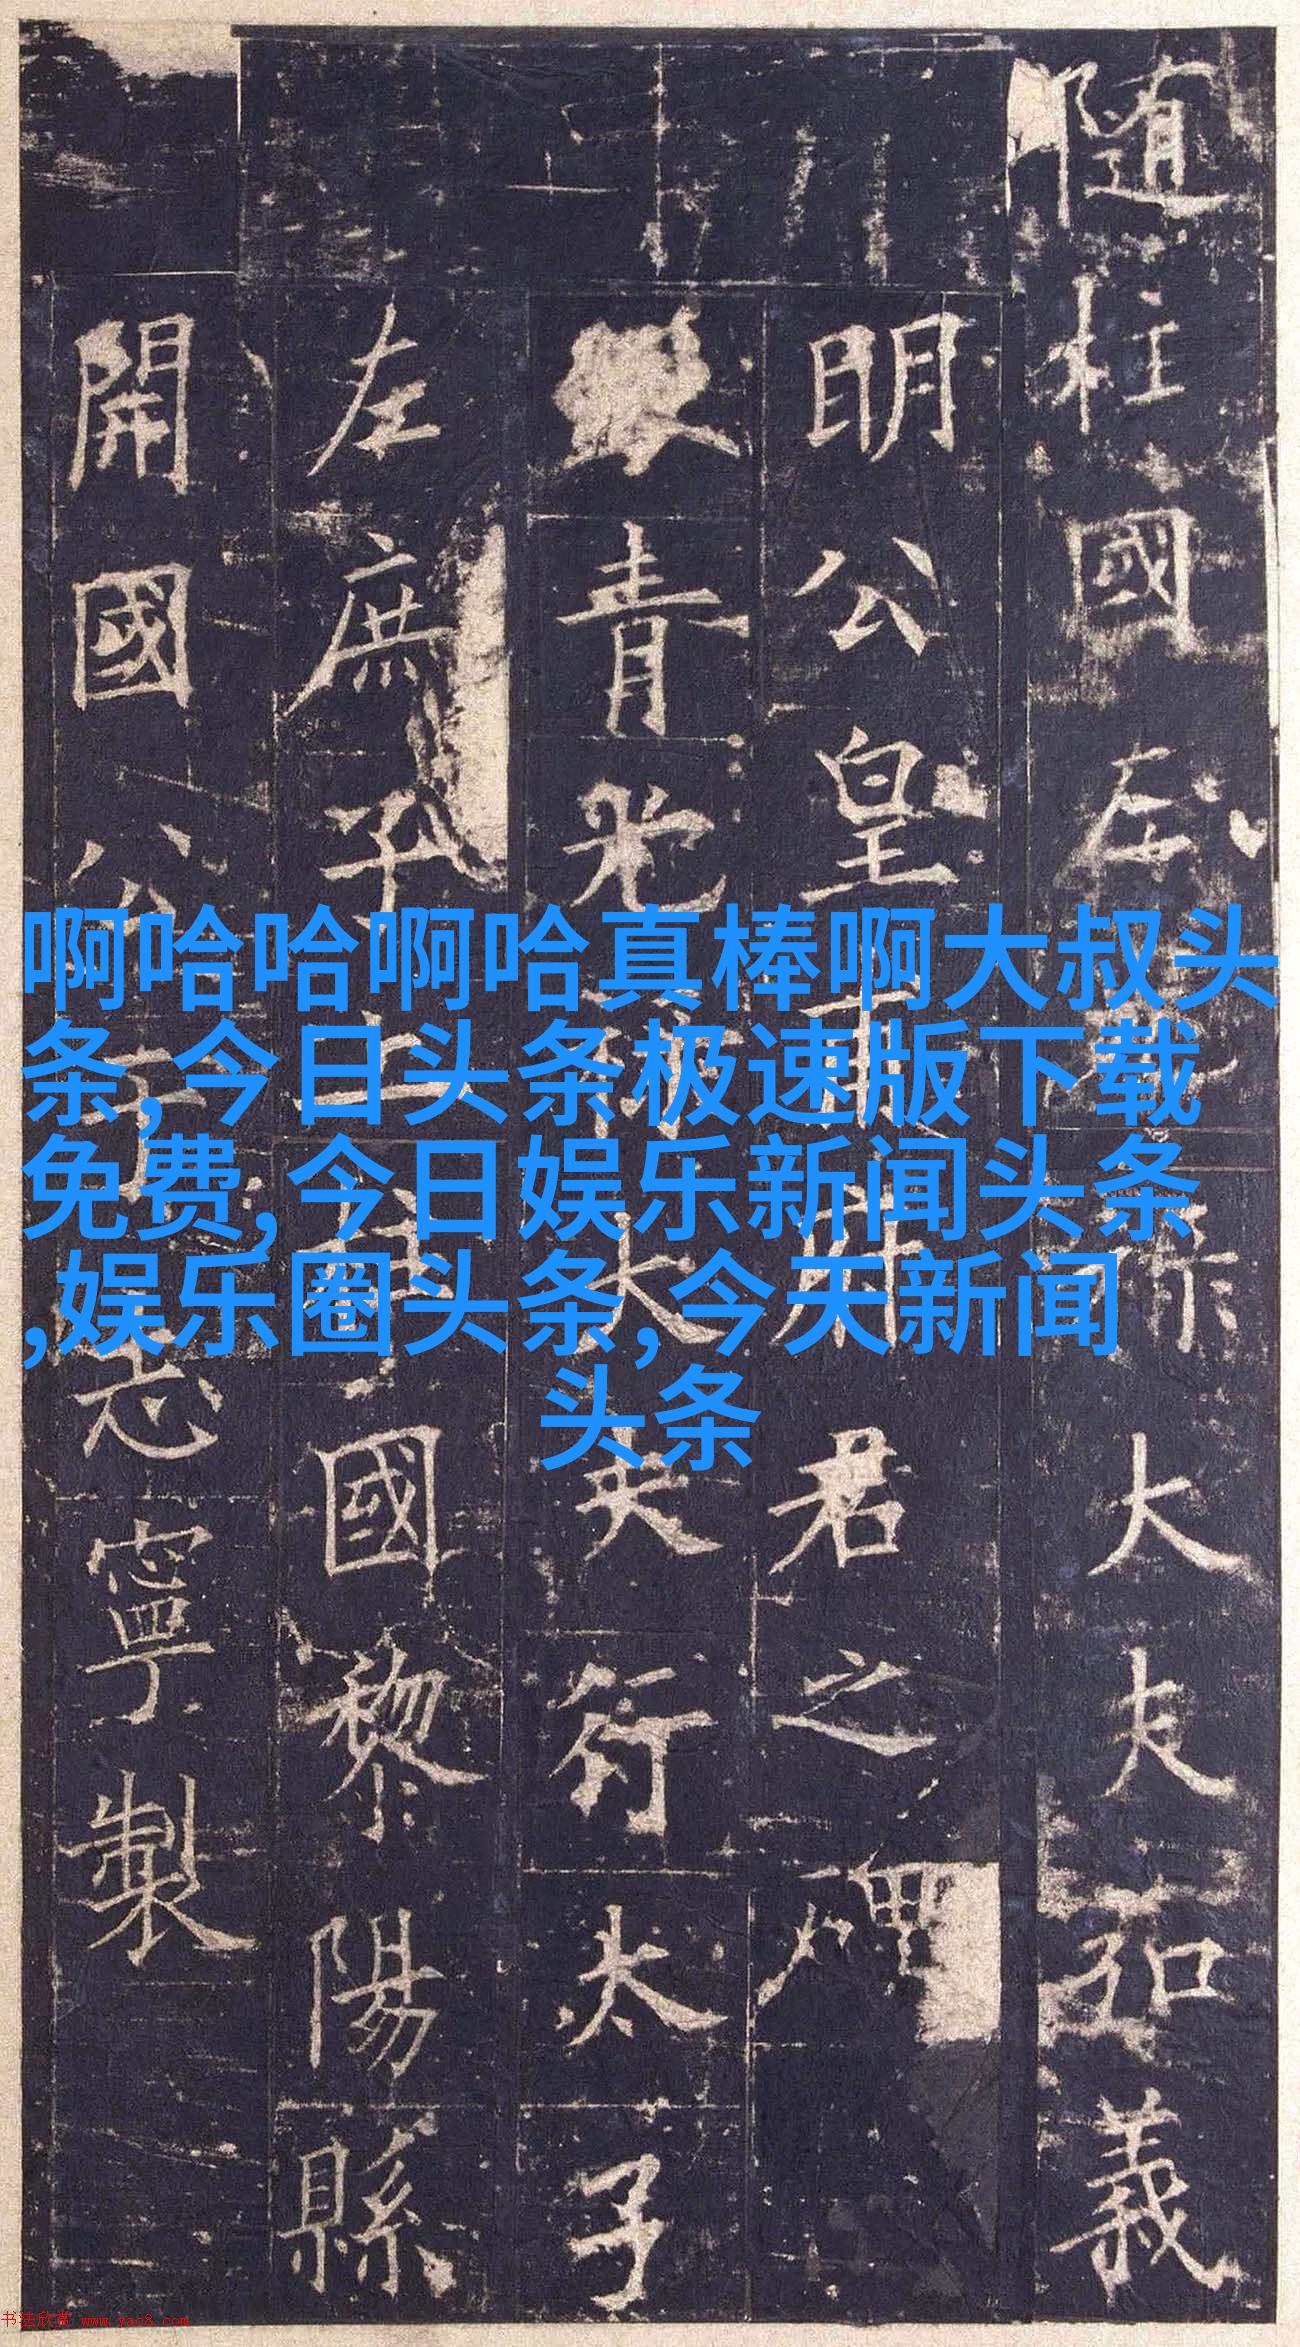 随柱國左大夫弘義
明公皇甫府君之碑
青光大夫行太子
左庶子上柱國黎陽縣
開國公于志寧製
啊哈哈啊哈真棒啊大叔头
条,今日头条极速版下载
免费,今日娱乐新闻头条
,娱乐圈头条,今天新闻
头条
书法欣赏 www.yac8.com